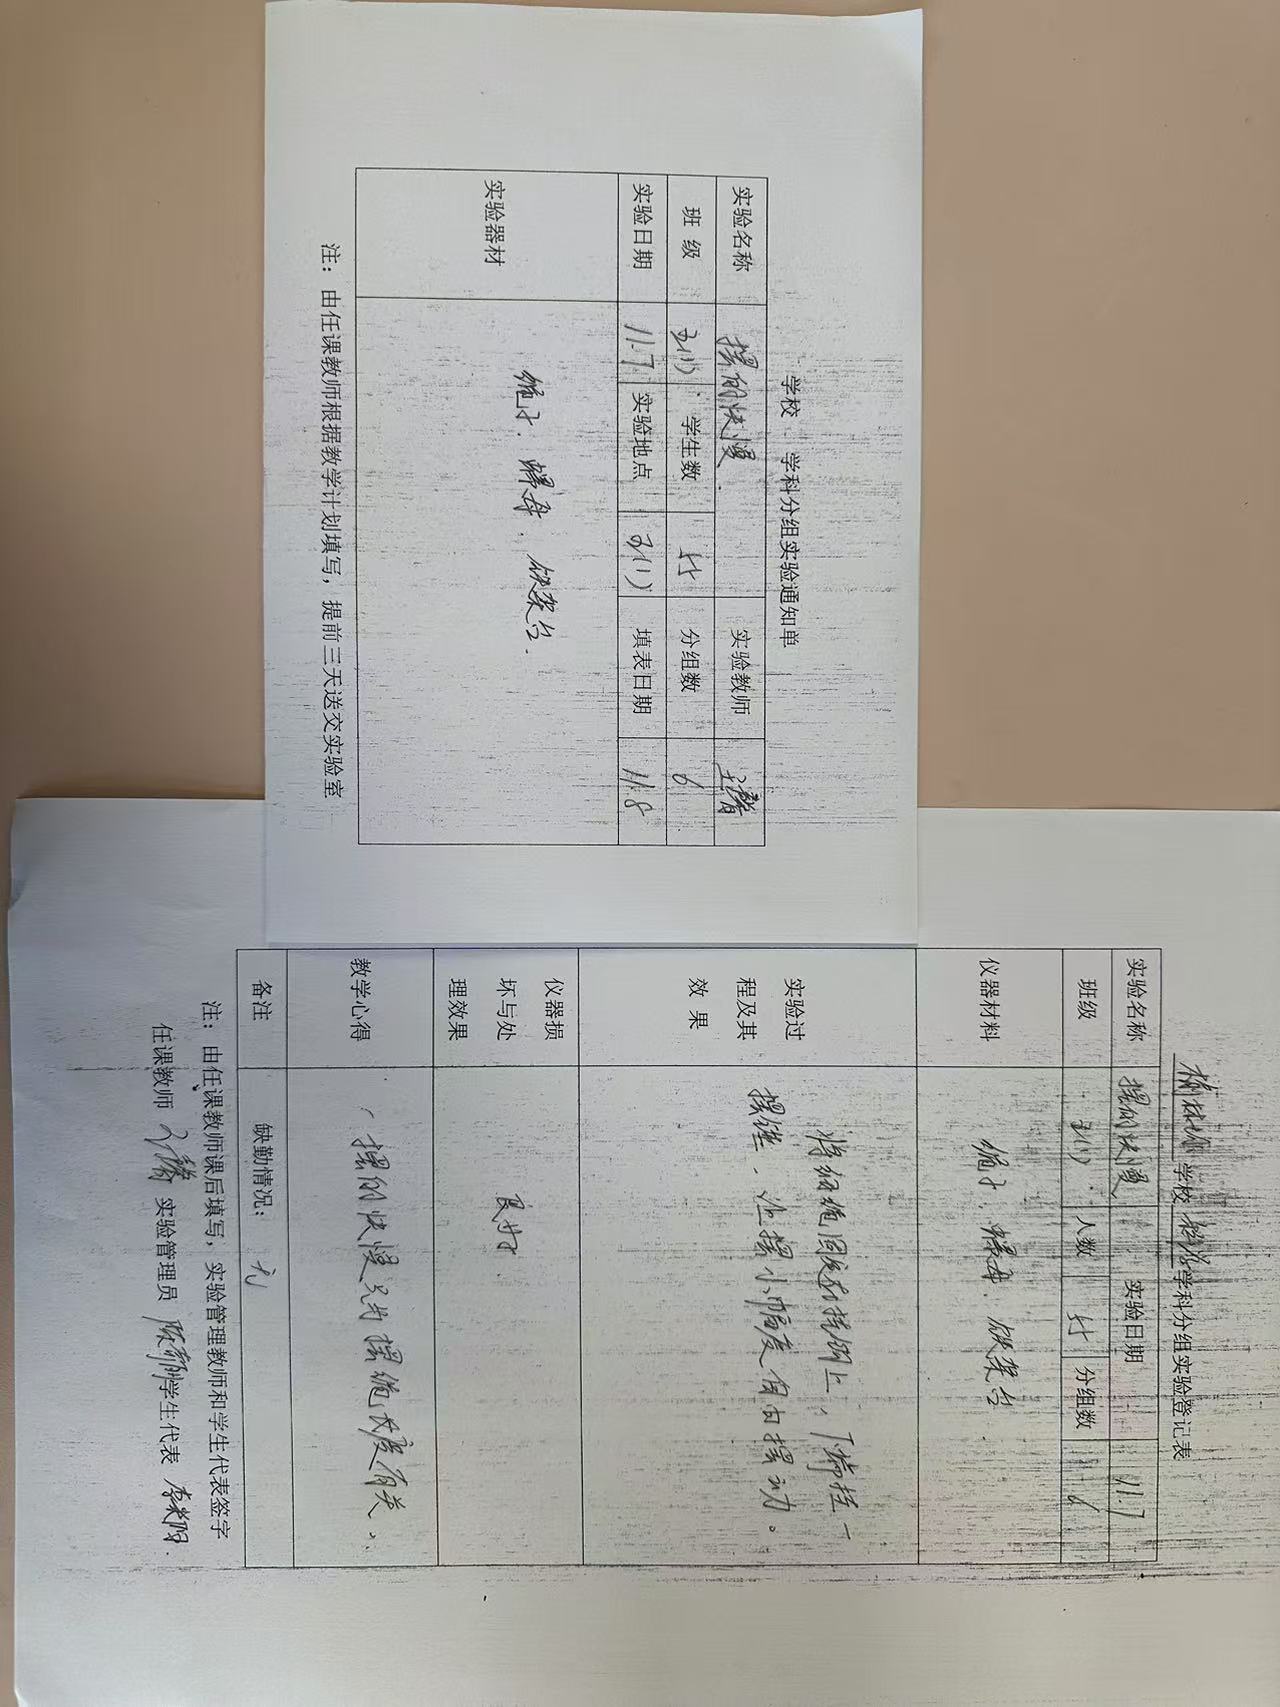 学校 学科分组实验通知单
实验名称 摆的快慢 实验教师
班 级 五(1) 学生数 分组数 6
实验日期 11.7 实验地点 五(1) 填表日期 11.8
实验器材 绳子、螺母、铁架台.
注：由任课教师根据教学计划填写，提前三天送交实验室
学校 科学 学科分组实验登记表
实验名称 摆的快慢 实验日期 11.7
班级 五(1) 人数 分组数 6
仪器材料 绳子、螺母、铁架台
实验过程及其效果 将细绳固定在挂钩上，下端挂一
摆锤，让摆小幅度自由摆动。
仪器损坏与处理效果 良好
教学心得 摆的快慢只与摆绳长度有关。
备注 缺勤情况： 无
注：由任课教师课后填写，实验管理教师和学生代表签字
任课教师 实验管理员 学生代表